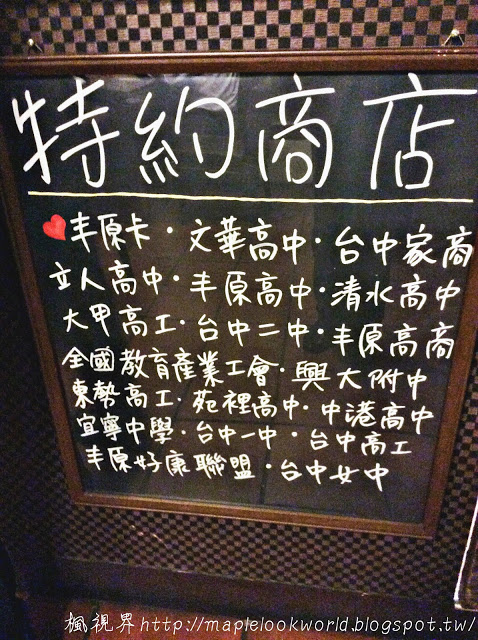 特約商店
丰原卡·文華高中·台中家商
立人高中·丰原高中·清水高中
大甲高工·台中二中·丰原高商
全國教育產業工會·興大附中
東勢高工·苑裡高中·中港高中
宜寧中學·台中一中·台中高工
丰原好康聯盟·台中女中
楓視界http://maplelookworld.blogspot.tw/